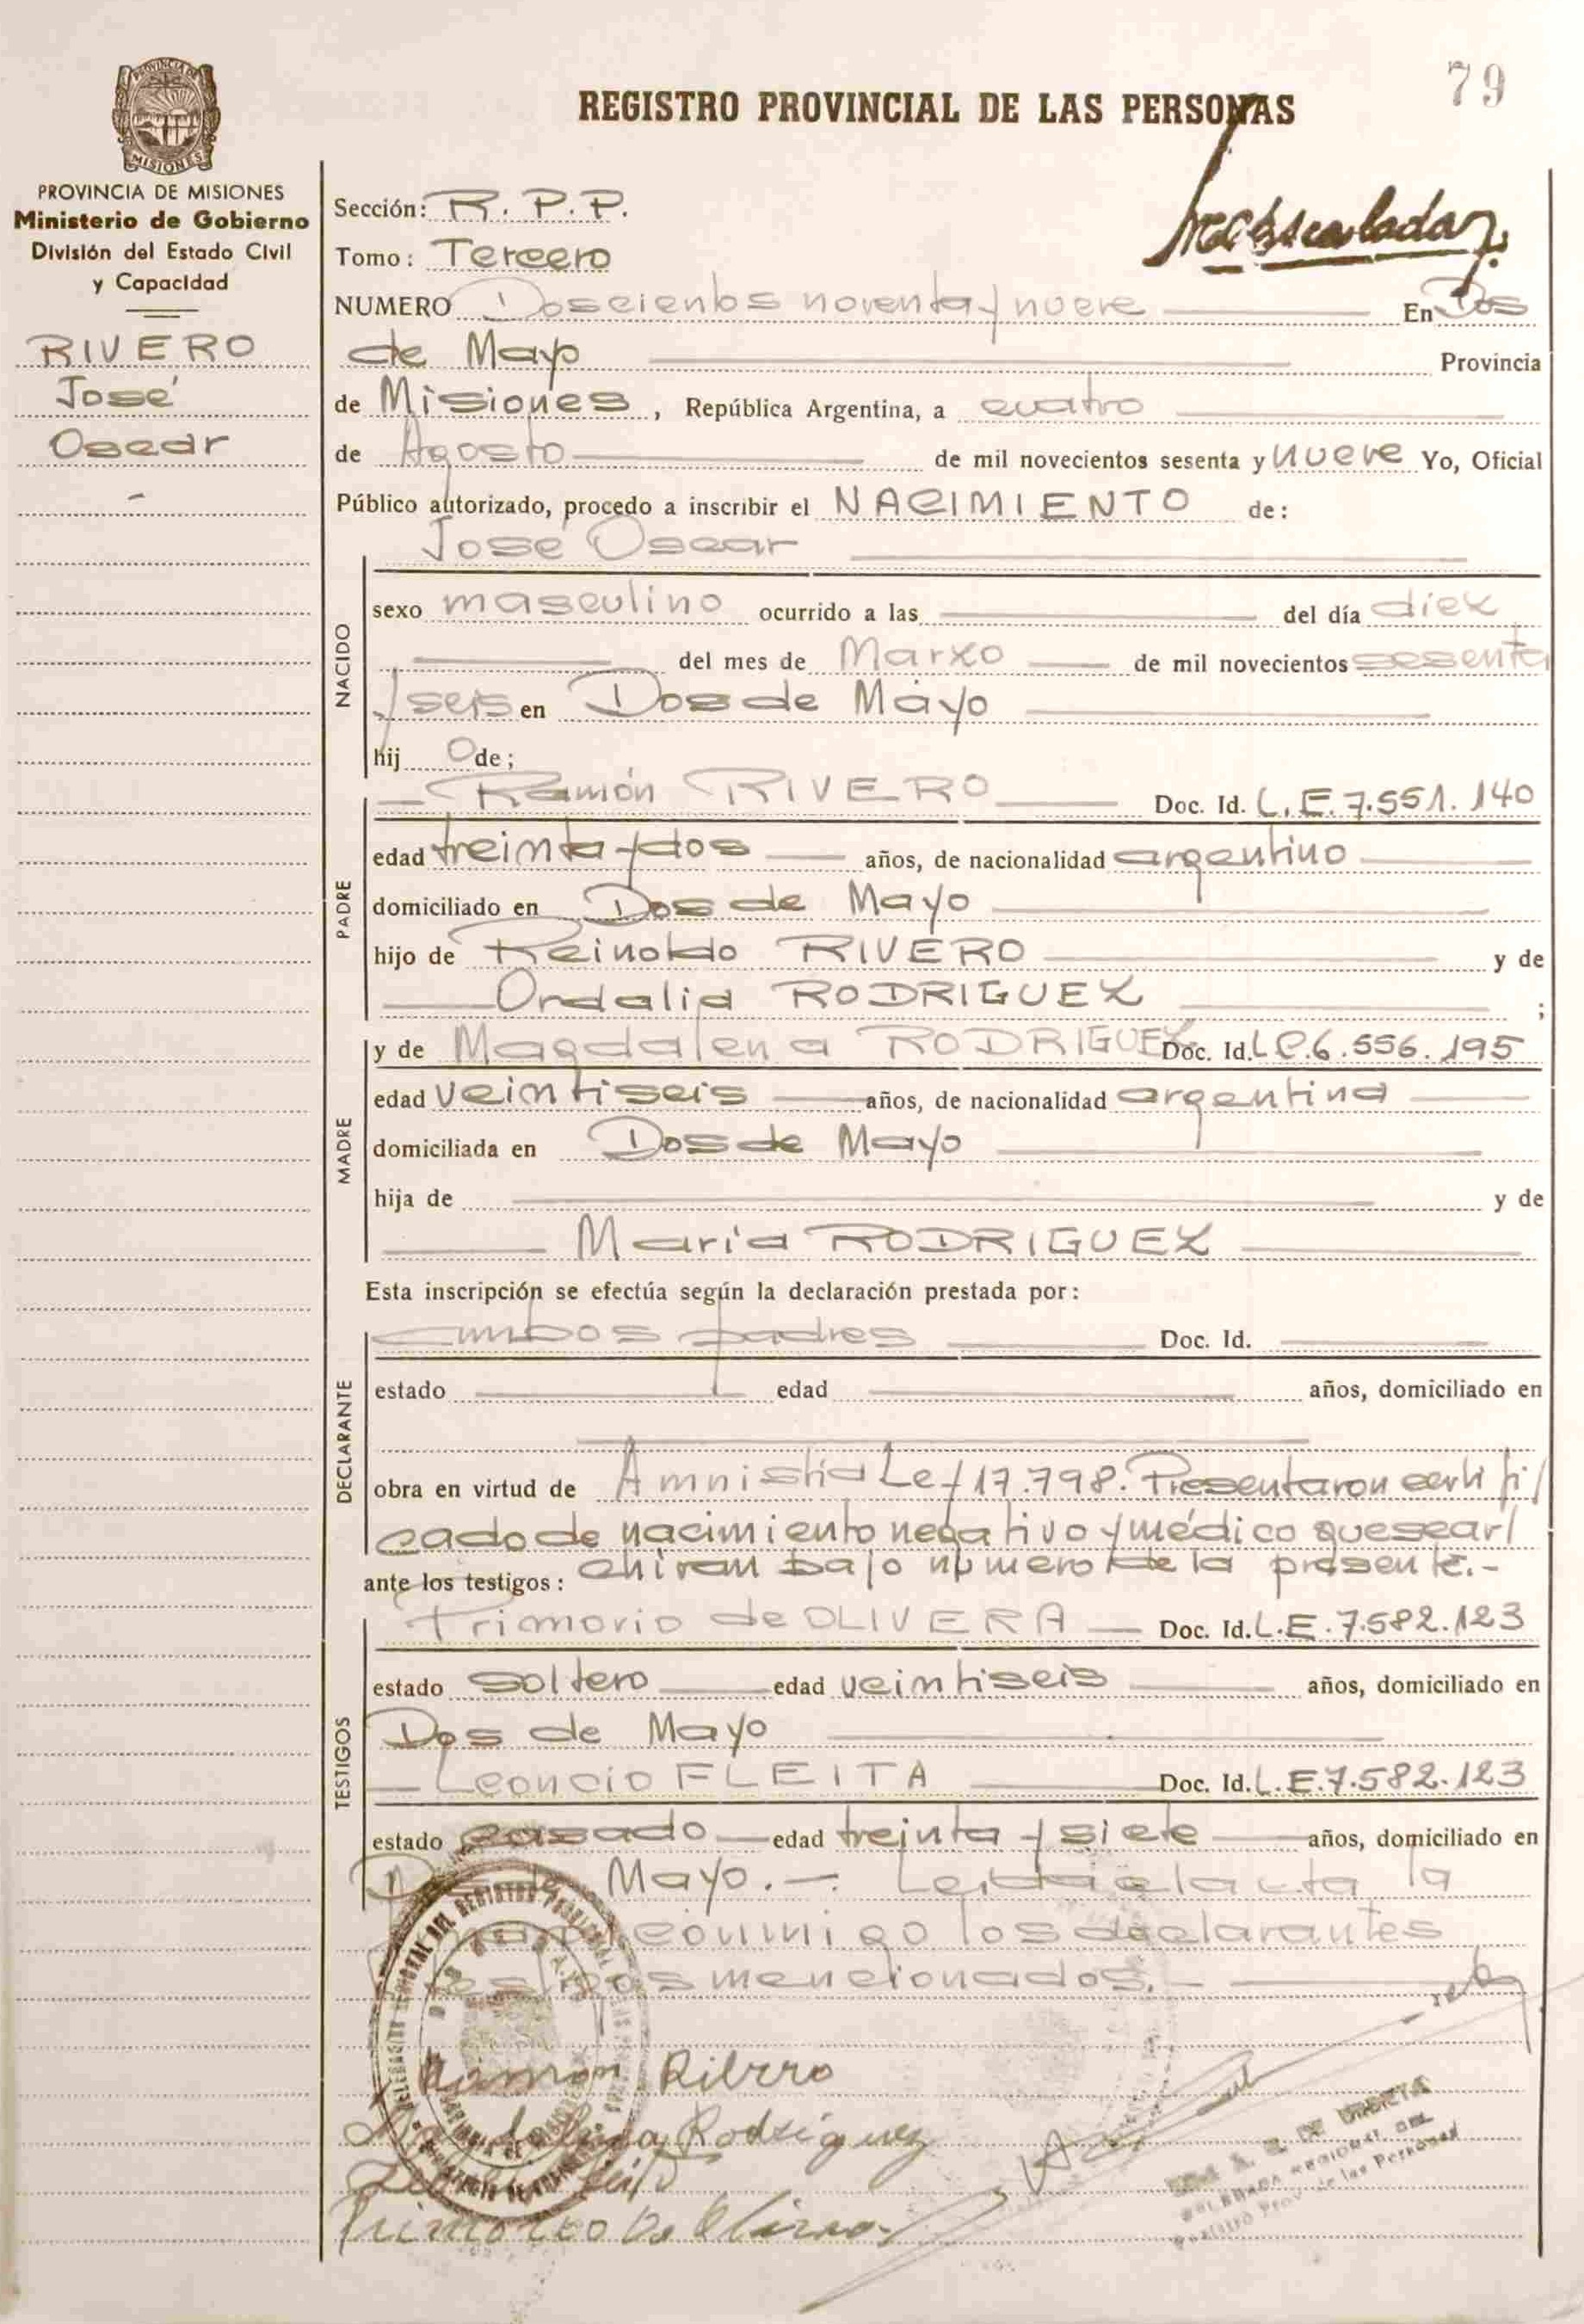 79
REGISTRO PROVINCIAL DE LAS PERSONAS
PROVINCIA DE
MISIONES
PROVINCIA DE MISIONES
Ministerio de Gobierno
División del Estado Civil
y Capacidad
RIVERO
José
Oscar
Sección: R. P. P.
Tomo: Tercero
NUMERO Doscientos noventa y nueve En Dos
de Mayo Provincia
de Misiones, República Argentina, a cuatro
de Agosto de mil novecientos sesenta y nueve Yo, Oficial
Público autorizado, procedo a inscribir el NACIMIENTO de:
José Oscar
NACIDO
sexo masculino ocurrido a las del día diez
del mes de Marzo de mil novecientos sesenta
y seis en Dos de Mayo
hij o de;
Ramón RIVERO Doc. Id. L.E. 7.551.140
PADRE
edad treinta y dos años, de nacionalidad argentino
domiciliado en Dos de Mayo
hijo de Reinoldo RIVERO y de
Ordalia RODRIGUEZ ;
y de Magdalena RODRIGUEZ Doc. Id. L.C. 6.556.195
MADRE
edad veintiseis años, de nacionalidad argentina
domiciliada en Dos de Mayo
hija de y de
María RODRIGUEZ
Esta inscripción se efectúa según la declaración prestada por:
ambos padres Doc. Id.
DECLARANTE
estado edad años, domiciliado en
obra en virtud de Amnistía Ley 17.798. Presentaron certifi/
cado de nacimiento negativo y médico que se ar/
ante los testigos: chivan bajo número de la presente.-
Primorio de OLIVERA Doc. Id. L.E. 7.582.123
TESTIGOS
estado soltero edad veintiseis años, domiciliado en
Dos de Mayo
Leoncio FLEITA Doc. Id. L.E. 7.582.123
estado casado edad treinta y siete años, domiciliado en
Mayo.- Leida el acta la
conmigo los declarantes
mencionados.-
Ramón Ribero
Rodriguez